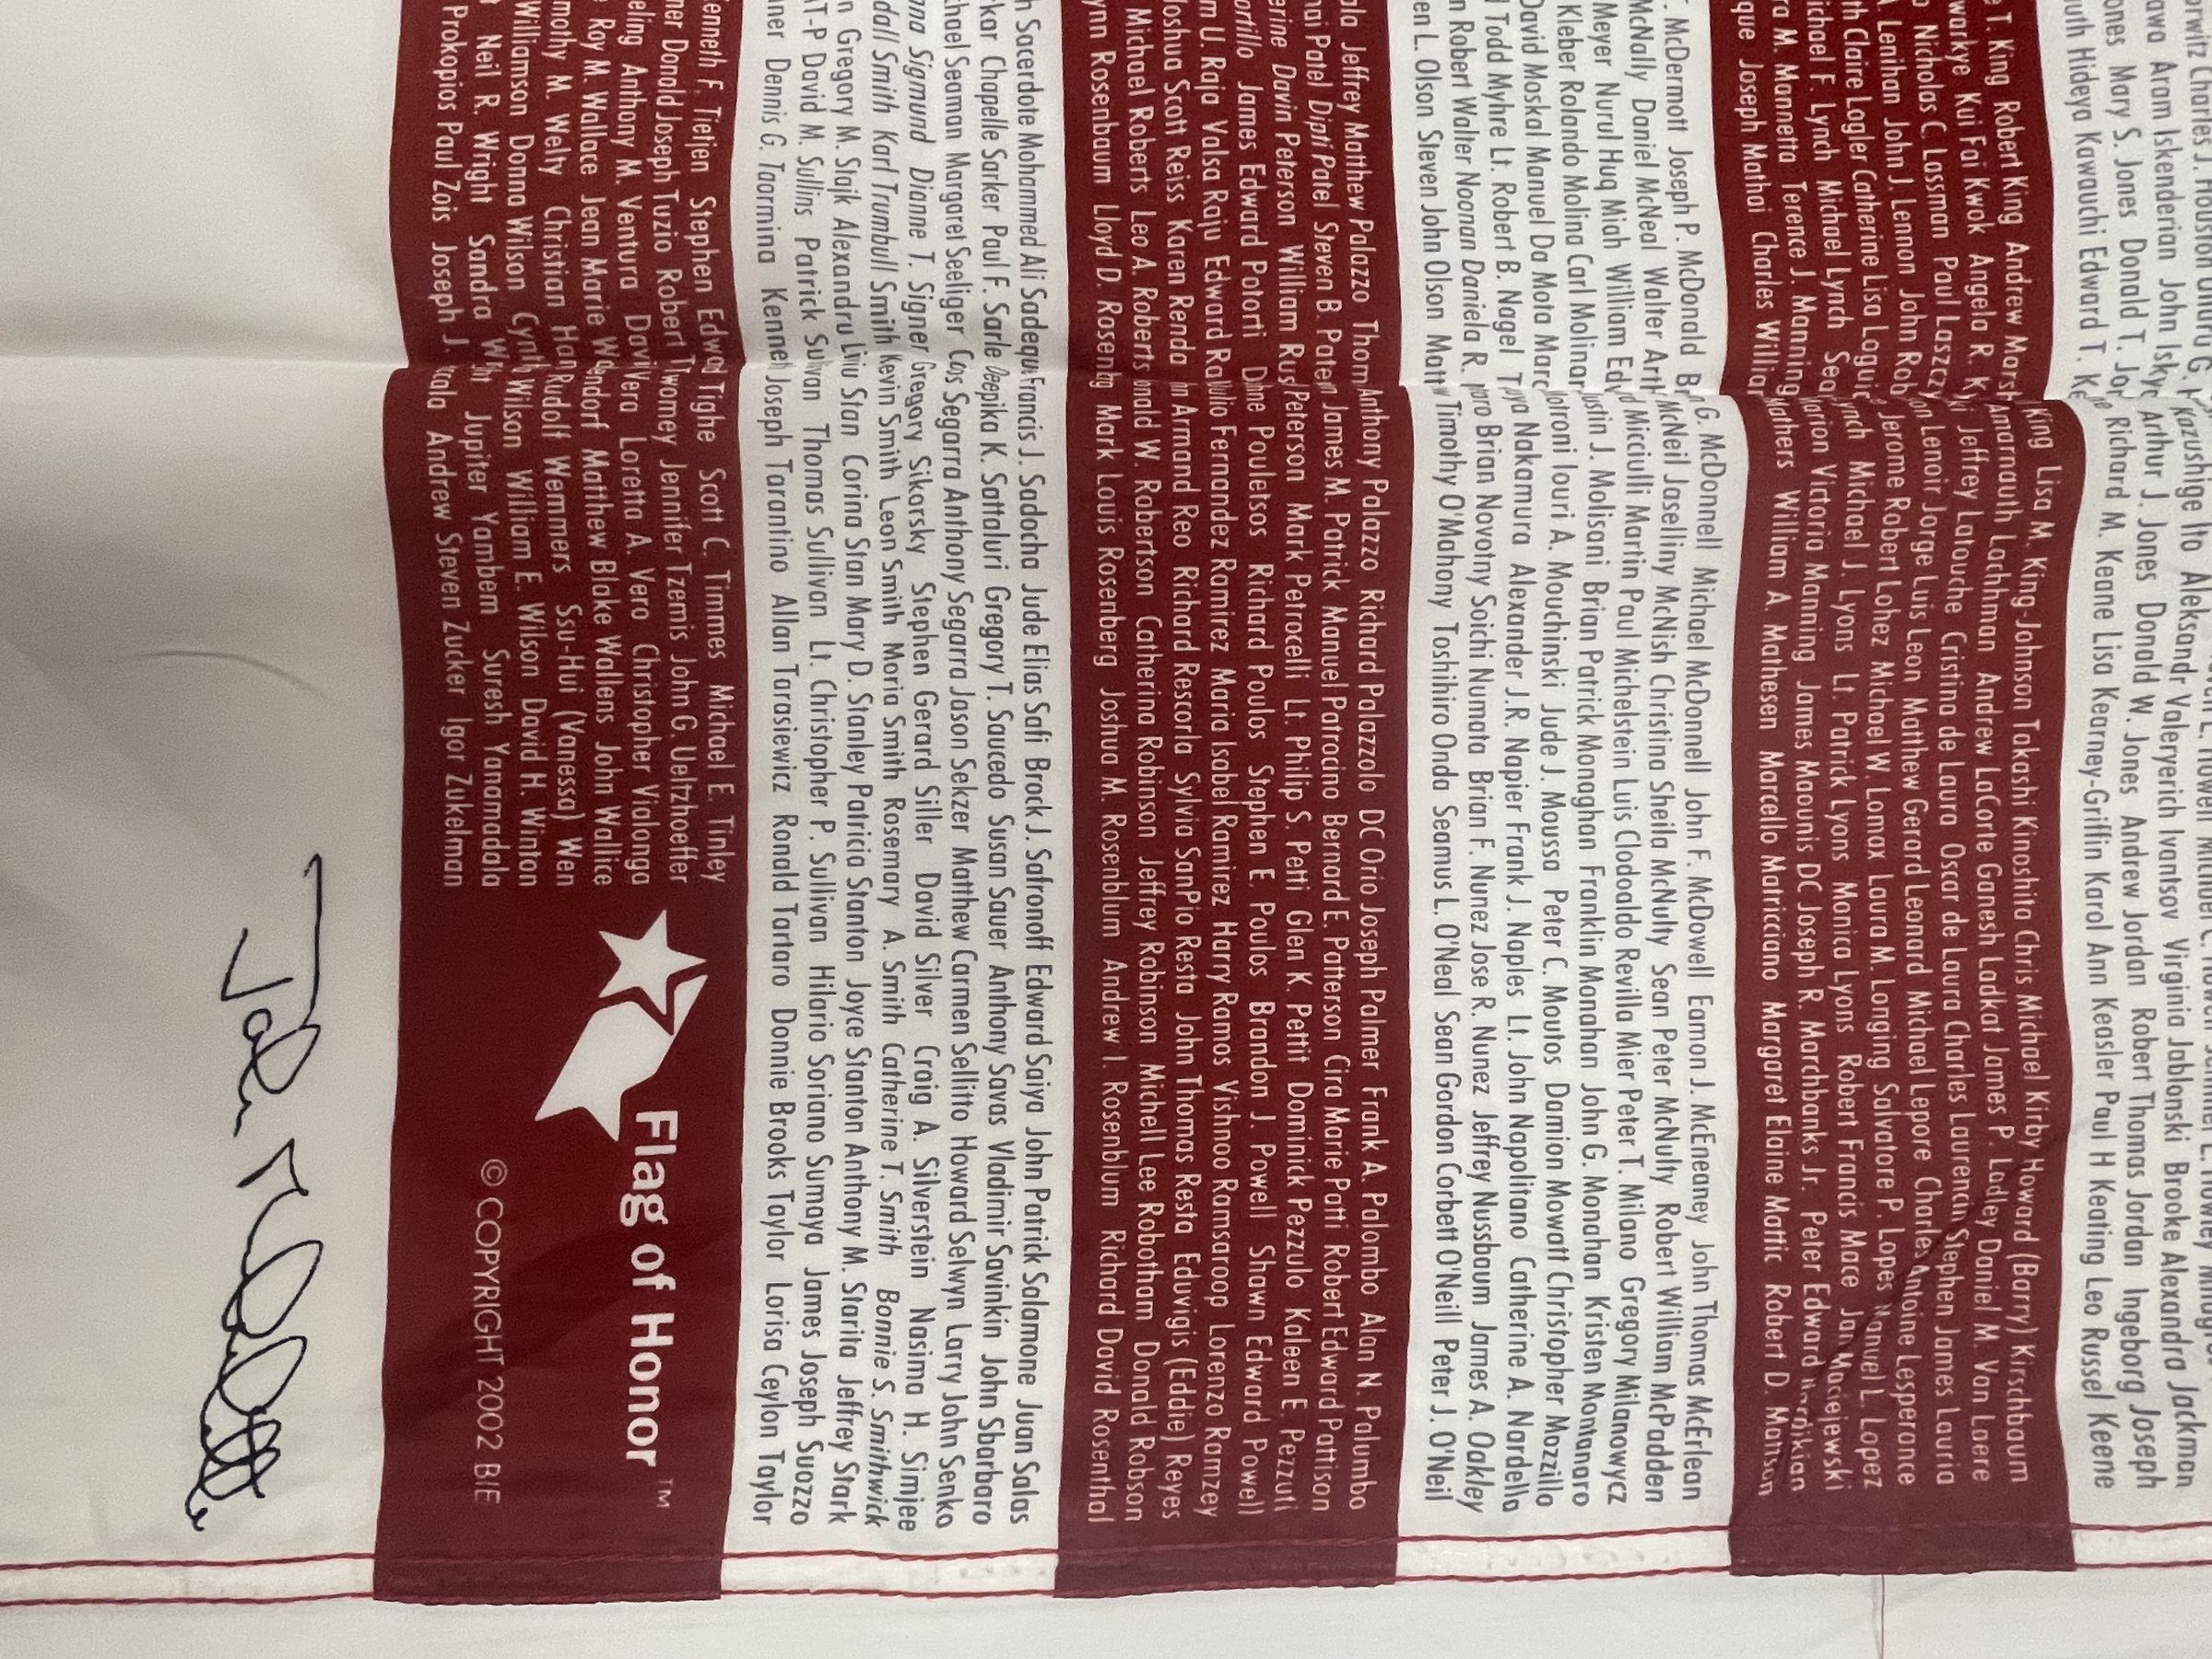 L. Howell Michael C.
Kazushige Ito Aleksandr Valeryerich Ivantsov Virginia Jablonski Brooke Alexandra Jackman
Aram Iskenderian John Arthur J. Jones Donald W. Jones Andrew Jordan Robert Thomas Jordan Ingeborg Joseph
Mary S. Jones Donald T. Richard M. Keane Lisa Kearney-Griffin Karol Ann Keasler Paul H Keating Leo Russel Keene
Hideya Kawauchi Edward T.
T. King Robert King Andrew King Lisa M. King-Johnson Takashi Kinoshita Chris Michael Kirby Howard (Barry) Kirschbaum
Kui Fai Kwok Angela R. Amarnauth Lachhman Andrew LaCorte Ganesh Ladkat James P. Ladley Daniel M. Van Laere
Nicholas C. Lassman Paul Jeffrey Latouche Cristina de Laura Oscar de Laura Charles Laurencin Stephen James Lauria
Lenihan John J. Lennon John Lenoir Jorge Luis Leon Matthew Gerard Leonard Michael Lepore Charles Antoine Lesperance
Claire Lagler Catherine Lisa Jerome Robert Lohez Michael W. Lomax Laura M. Longing Salvatore P. Lopes Manuel L. Lopez
Michael F. Lynch Michael Lynch Michael J. Lyons Lt. Patrick Lyons Monica Lyons Robert Francis Mace Jan Maciejewski
M. Mannetta Terence J. Manning Marion Victoria Manning James Maounis DC Joseph R. Marchbanks Jr. Peter Edward
Joseph Mathai Charles William A. Mathesen Marcello Matricciano Margaret Elaine Mattic Robert D. Mattson
McDermott Joseph P. McDonald G. McDonnell Michael McDonnell John F. McDowell Eamon J. McEneaney John Thomas McErlean
McNally Daniel McNeal Walter McNeil Jaselliny McNish Christina Sheila McNulty Sean Peter McNulty Robert William McPadden
Meyer Nurul Huq Miah William Micciulli Martin Paul Michelstein Luis Clodoaldo Revilla Mier Peter T. Milano Gregory Milanowycz
Kleber Rolando Molina Carl Justin J. Molisani Brian Patrick Monaghan Franklin Monahan John G. Monahan Kristen Montanaro
David Moskal Manuel Da Mota Iouri A. Mouchinski Jude J. Moussa Peter C. Moutos Damion Mowatt Christopher Mozzillo
Todd Myhre Lt. Robert B. Nagel Nakamura Alexander J.R. Napier Frank J. Naples Lt. John Napolitano Catherine A. Nardella
Robert Walter Noonan Daniela R. Brian Novotny Soichi Numata Brian F. Nunez Jose R. Nunez Jeffrey Nussbaum James A. Oakley
L. Olson Steven John Olson Timothy O'Mahony Toshihiro Onda Seamus L. O'Neal Sean Gordon Corbett O'Neill Peter J. O'Neil
Jeffrey Matthew Palazzo Anthony Palazzo Richard Palazzolo DC Orio Joseph Palmer Frank A. Palombo Alan N. Palumbo
Patel Dipti Patel Steven B. James M. Patrick Manuel Patrocino Bernard E. Patterson Cira Marie Patti Robert Edward Pattison
Davin Peterson William Peterson Mark Petrocelli Lt. Philip S. Petti Glen K. Pettit Dominick Pezzulo Kaleen E. Pezzuti
James Edward Potorti Pouletsos Richard Poulos Stephen E. Poulos Brandon J. Powell Shawn Edward Powell
U. Raja Valsa Raju Edward Fernandez Ramirez Maria Isabel Ramirez Harry Ramos Vishnoo Ramsaroop Lorenzo Ramzey
Joshua Scott Reiss Karen Renda Armand Reo Richard Rescorla Sylvia SanPio Resta John Thomas Resta Eduvigis (Eddie) Reyes
Michael Roberts Leo A. Roberts W. Robertson Catherina Robinson Jeffrey Robinson Michell Lee Robotham Donald Robson
Rosenbaum Lloyd D. Mark Louis Rosenberg Joshua M. Rosenblum Andrew I. Rosenblum Richard David Rosenthal
Sacerdote Mohammed Ali Francis J. Sadocha Jude Elias Safi Brock J. Safronoff Edward Saiya John Patrick Salamone Juan Salas
Chapelle Sarker Paul F. Sarle Deepika K. Sattaluri Gregory T. Saucedo Susan Sauer Anthony Savas Vladimir Savinkin John Sbarbaro
Seaman Margaret Seeliger Segarra Anthony Segarra Jason Sekzer Matthew Carmen Sellitto Howard Selwyn Larry John Senko
Sigmund Dianne T. Signer Gregory Sikorsky Stephen Gerard Siller David Silver Craig A. Silverstein Nasima H. Simjee
Smith Karl Trumbull Smith Kevin Smith Leon Smith Moria Smith Rosemary A. Smith Catherine T. Smith Bonnie S. Smithwick
Gregory M. Stajk Alexandru Liviu Stan Corina Stan Mary D. Stanley Patricia Stanton Joyce Stanton Anthony M. Starita Jeffrey Stark
David M. Sullins Patrick Sullivan Thomas Sullivan Lt. Christopher P. Sullivan Hilario Soriano Sumaya James Joseph Suozzo
Dennis G. Taormina Kenneth Joseph Tarantino Allan Tarasiewicz Ronald Tartaro Donnie Brooks Taylor Lorisa Ceylon Taylor
Kenneth F. Tietjen Stephen Edward Tighe Scott C. Timmes Michael E. Tinley
Donald Joseph Tuzio Robert Twomey Jennifer Tzemis John G. Ueltzhoeffer
Anthony M. Ventura David Vera Loretta A. Vero Christopher Vialonga
Roy M. Wallace Jean Marie Matthew Blake Wallens John Wallice
M. Welty Christian Rudolf Wemmers Ssu-Hui (Vanessa) Wen
Williamson Donna Wilson Wilson William E. Wilson David H. Winton
Neil R. Wright Sandra Jupiter Yambem Suresh Yanamadala
Prokopios Paul Zois Joseph J. Andrew Steven Zucker Igor Zukelman
Flag of Honor ™
© COPYRIGHT 2002 BIE
John